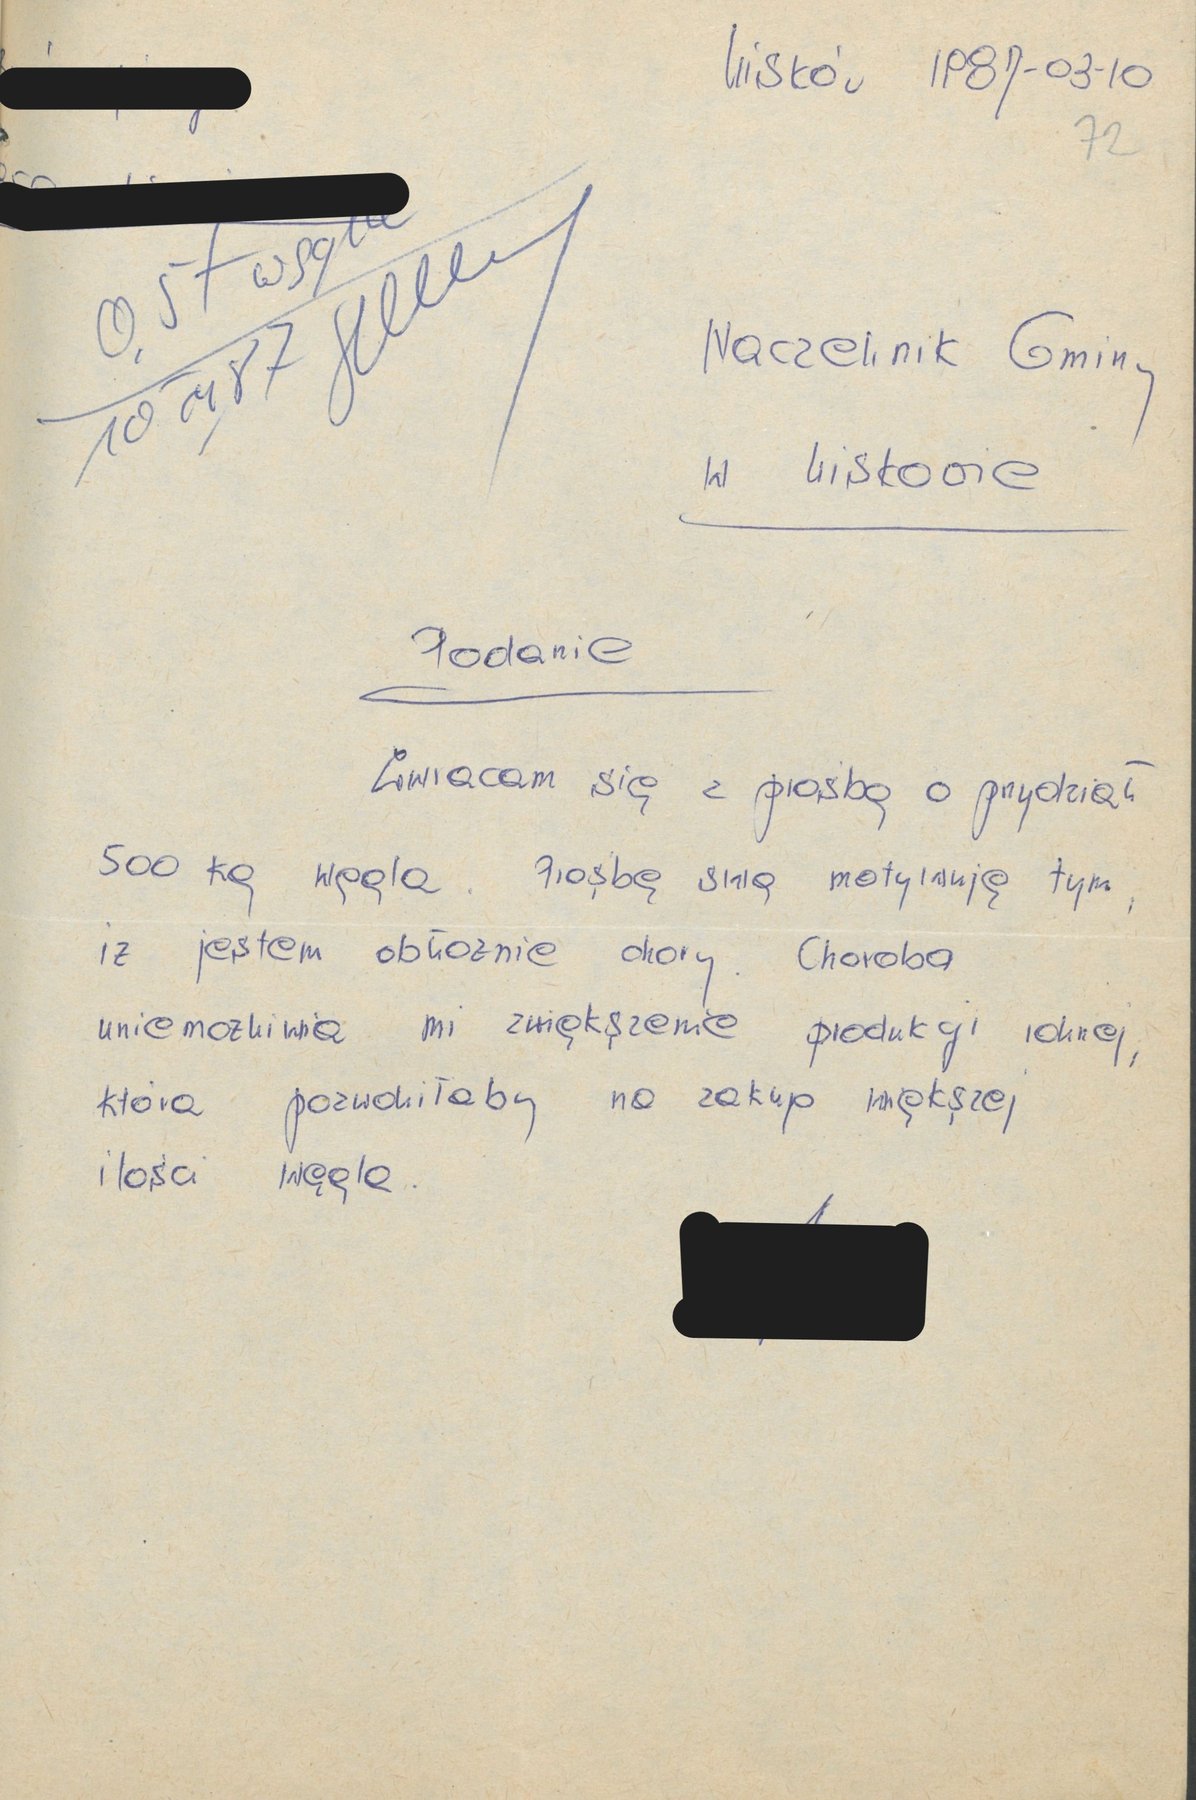 Lisków 1987-03-10
72
0,5 t węgla
10 03 87
Naczelnik Gminy
w Liskowie
Podanie
Zwracam się z prośbą o przydział
500 kg węgla. Prośbę swą motywuję tym,
iż jestem obłożnie chory. Choroba
uniemożliwia mi zwiększenie produkcji rolnej,
która pozwoliłaby na zakup większej
ilości węgla.